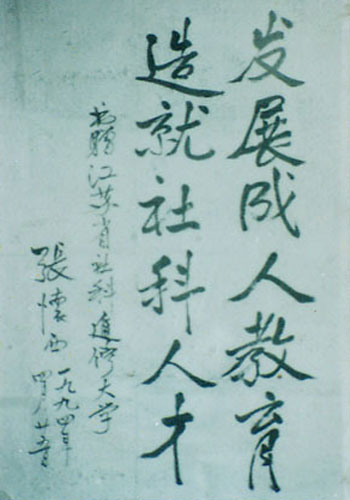 发展成人教育
造就社科人才
书赠江苏省社科进修大学
張怀西
一九九四年
四月廿六日